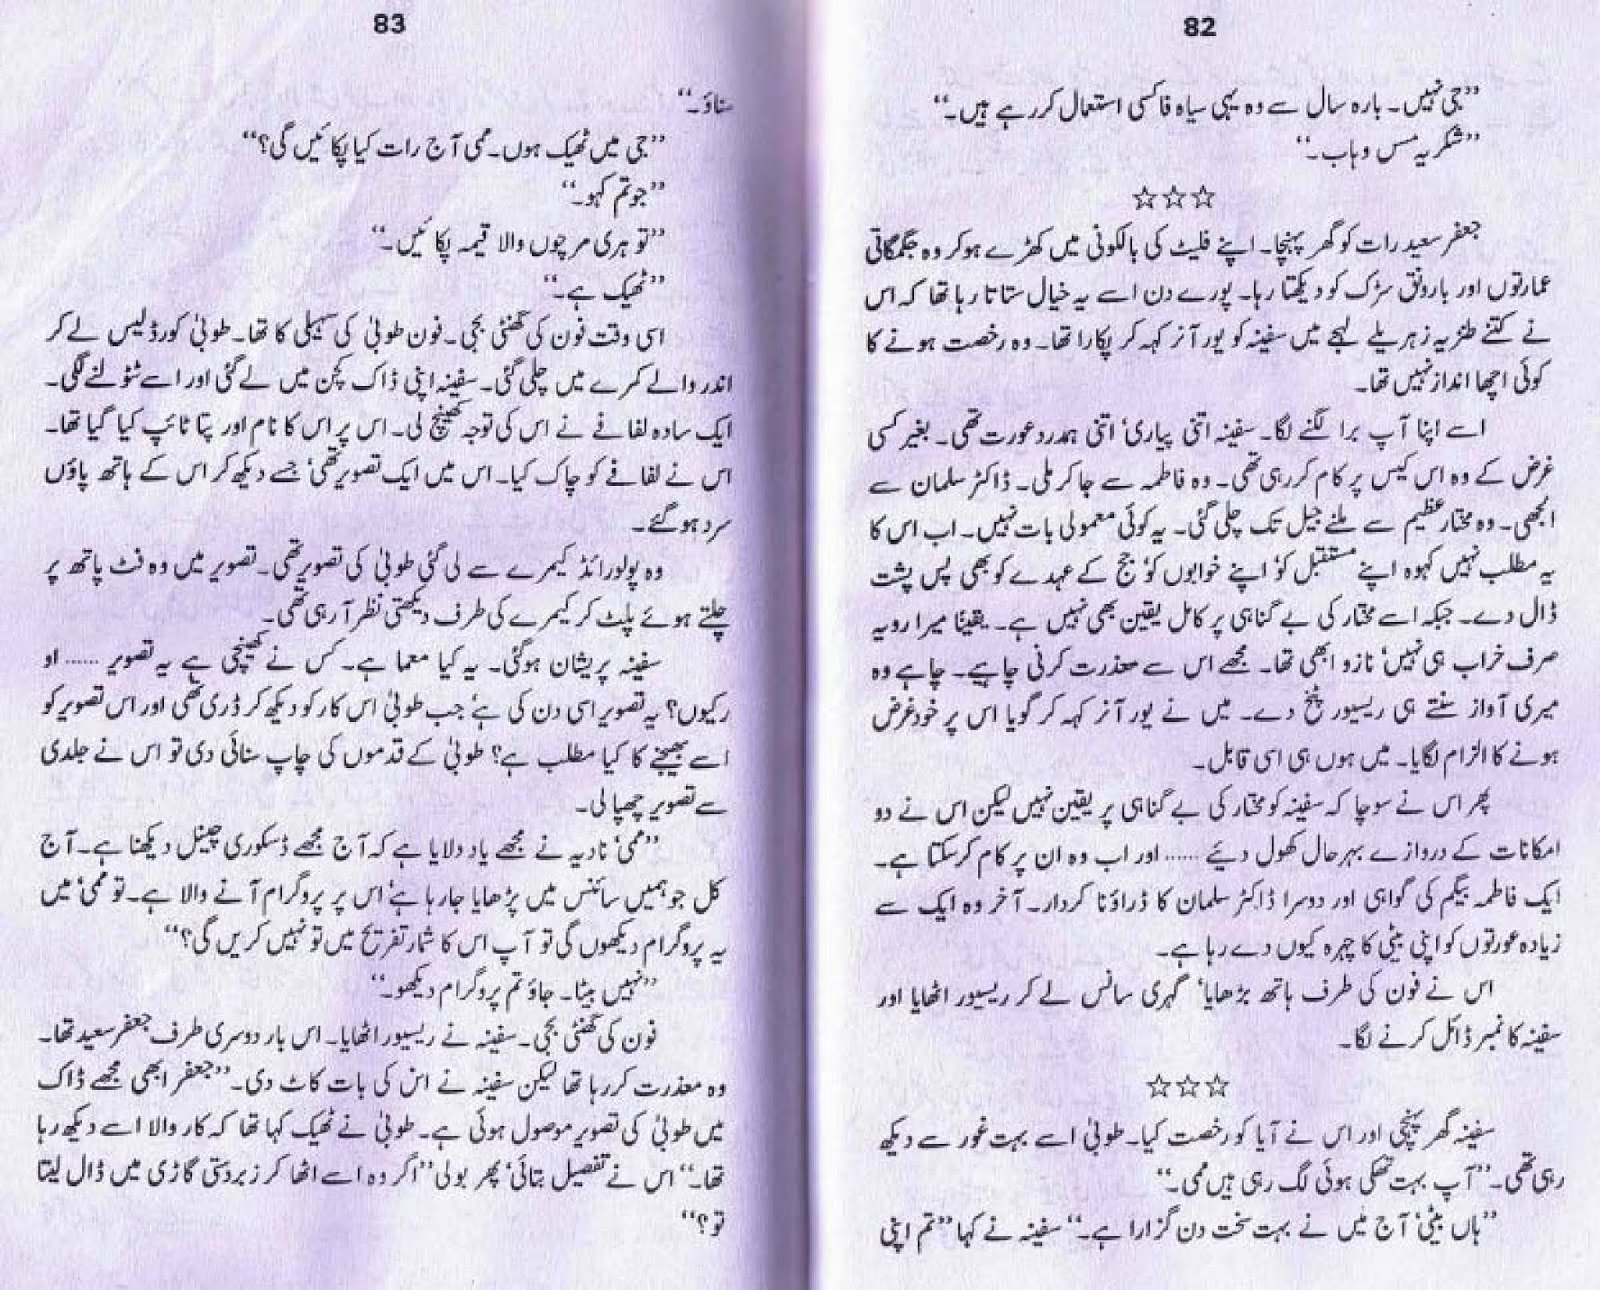 82
”جی نہیں۔ بارہ سال سے وہ یہی سیاہ فاکسی استعمال کر رہے ہیں۔“
”شکریہ مس وہاب۔“
☆☆☆
جعفر سعید رات کو گھر پہنچا۔ اپنے فلیٹ کی بالکونی میں کھڑے ہوکر وہ جگمگاتی
عمارتوں اور بارونق سڑک کو دیکھتا رہا۔ پورے دن اسے یہ خیال ستاتا رہا تھا کہ اس
نے کتنے طنزیہ زہریلے لہجے میں سفینہ کو یور آنر کہہ کر پکارا تھا۔ وہ رخصت ہونے کا
کوئی اچھا انداز نہیں تھا۔
اسے اپنا آپ برا لگنے لگا۔ سفینہ اتنی پیاری‘ اتنی ہمدرد عورت تھی۔ بغیر کسی
غرض کے وہ اس کیس پر کام کر رہی تھی۔ وہ فاطمہ سے جا کر ملی۔ ڈاکٹر سلمان سے
الجھی۔ وہ مختار عظیم سے ملنے جیل تک چلی گئی۔ یہ کوئی معمولی بات نہیں۔ اب اس کا
یہ مطلب نہیں کہوہ اپنے مستقبل کو‘ اپنے خوابوں کو‘ جج کے عہدے کو بھی پس پشت
ڈال دے۔ جبکہ اسے مختار کی بے گناہی پر کامل یقین بھی نہیں ہے۔ یقیناً میرا رویہ
صرف خراب ہی نہیں‘ نازوا بھی تھا۔ مجھے اس سے معذرت کرنی چاہیے۔ چاہے وہ
میری آواز سنتے ہی ریسیور پٹخ دے۔ میں نے یور آنر کہہ کر گویا اس پر خود غرض
ہونے کا الزام لگایا۔ میں ہوں ہی اسی قابل۔
پھر اس نے سوچا کہ سفینہ کو مختار کی بے گناہی پر یقین نہیں لیکن اس نے دو
امکانات کے دروازے بہرحال کھول دیئے ...... اور اب وہ ان پر کام کرسکتا ہے۔
ایک فاطمہ بیگم کی گواہی اور دوسرا ڈاکٹر سلمان کا ڈراؤنا کردار۔ آخر وہ ایک سے
زیادہ عورتوں کو اپنی بیٹی کا چہرہ کیوں دے رہا ہے۔
اس نے فون کی طرف ہاتھ بڑھایا‘ گہری سانس لے کر ریسیور اٹھایا اور
سفینہ کا نمبر ڈائل کرنے لگا۔
☆☆☆
سفینہ گھر پہنچی اور اس نے آیا کو رخصت کیا۔ طوبیٰ اسے بہت غور سے دیکھ
رہی تھی۔ ”آپ بہت تھکی ہوئی لگ رہی ہیں ممی۔“
”ہاں بیٹی‘ آج میں نے بہت سخت دن گزارا ہے۔“ سفینہ نے کہا ”تم اپنی
83
سناؤ۔“
”جی میں ٹھیک ہوں۔ ممی آج رات کیا پکائیں گی؟“
”جو تم کہو۔“
”تو ہری مرچوں والا قیمہ پکائیں۔“
”ٹھیک ہے۔“
اسی وقت فون کی گھنٹی بجی۔ فون طوبیٰ کی سہیلی کا تھا۔ طوبیٰ کورڈلیس لے کر
اندر والے کمرے میں چلی گئی۔ سفینہ اپنی ڈاک کچن میں لے گئی اور اسے ٹٹولنے لگی۔
ایک سادہ لفافے نے اس کی توجہ کھینچ لی۔ اس پر اس کا نام اور پتا ٹائپ کیا گیا تھا۔
اس نے لفافے کو چاک کیا۔ اس میں ایک تصویر تھی‘ جسے دیکھ کر اس کے ہاتھ پاؤں
سرد ہوگئے۔
وہ پولورائڈ کیمرے سے لی گئی طوبیٰ کی تصویر تھی۔ تصویر میں وہ فٹ پاتھ پر
چلتے ہوئے پلٹ کر کیمرے کی طرف دیکھتی نظر آرہی تھی۔
سفینہ پریشان ہوگئی۔ یہ کیا معما ہے۔ کس نے کھینچی ہے یہ تصویر ...... او
رکیوں؟ یہ تصویر اسی دن کی ہے‘ جب طوبیٰ اس کار کو دیکھ کر ڈری تھی اور اس تصویر کو
اسے بھیجنے کا کیا مطلب ہے؟ طوبیٰ کے قدموں کی چاپ سنائی دی تو اس نے جلدی
سے تصویر چھپا لی۔
”ممی‘ نادیہ نے مجھے یاد دلایا ہے کہ آج مجھے ڈسکوری چینل دیکھنا ہے۔ آج
کل جو ہمیں سائنس میں پڑھایا جارہا ہے‘ اس پر پروگرام آنے والا ہے۔ تو ممی‘ میں
یہ پروگرام دیکھوں گی تو آپ اس کا شمار تفریح میں تو نہیں کریں گی؟“
”نہیں بیٹا۔ جاؤ تم پروگرام دیکھو۔“
فون کی گھنٹی بجی۔ سفینہ نے ریسیور اٹھایا۔ اس بار دوسری طرف جعفر سعید تھا۔
وہ معذرت کر رہا تھا لیکن سفینہ نے اس کی بات کاٹ دی۔ ”جعفر ابھی مجھے ڈاک
میں طوبیٰ کی تصویر موصول ہوئی ہے۔ طوبیٰ نے ٹھیک کہا تھا کہ کار والا اسے دیکھ رہا
تھا۔“ اس نے تفصیل بتائی‘ پھر بولی ”اگر وہ اسے اٹھا کر زبردستی گاڑی میں ڈال لیتا
تو؟“